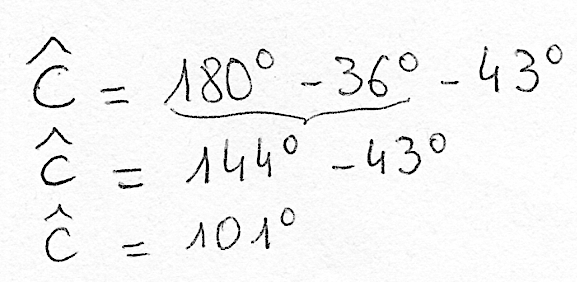 Ĉ = 180° - 36° - 43°
Ĉ = 144° - 43°
Ĉ = 101°